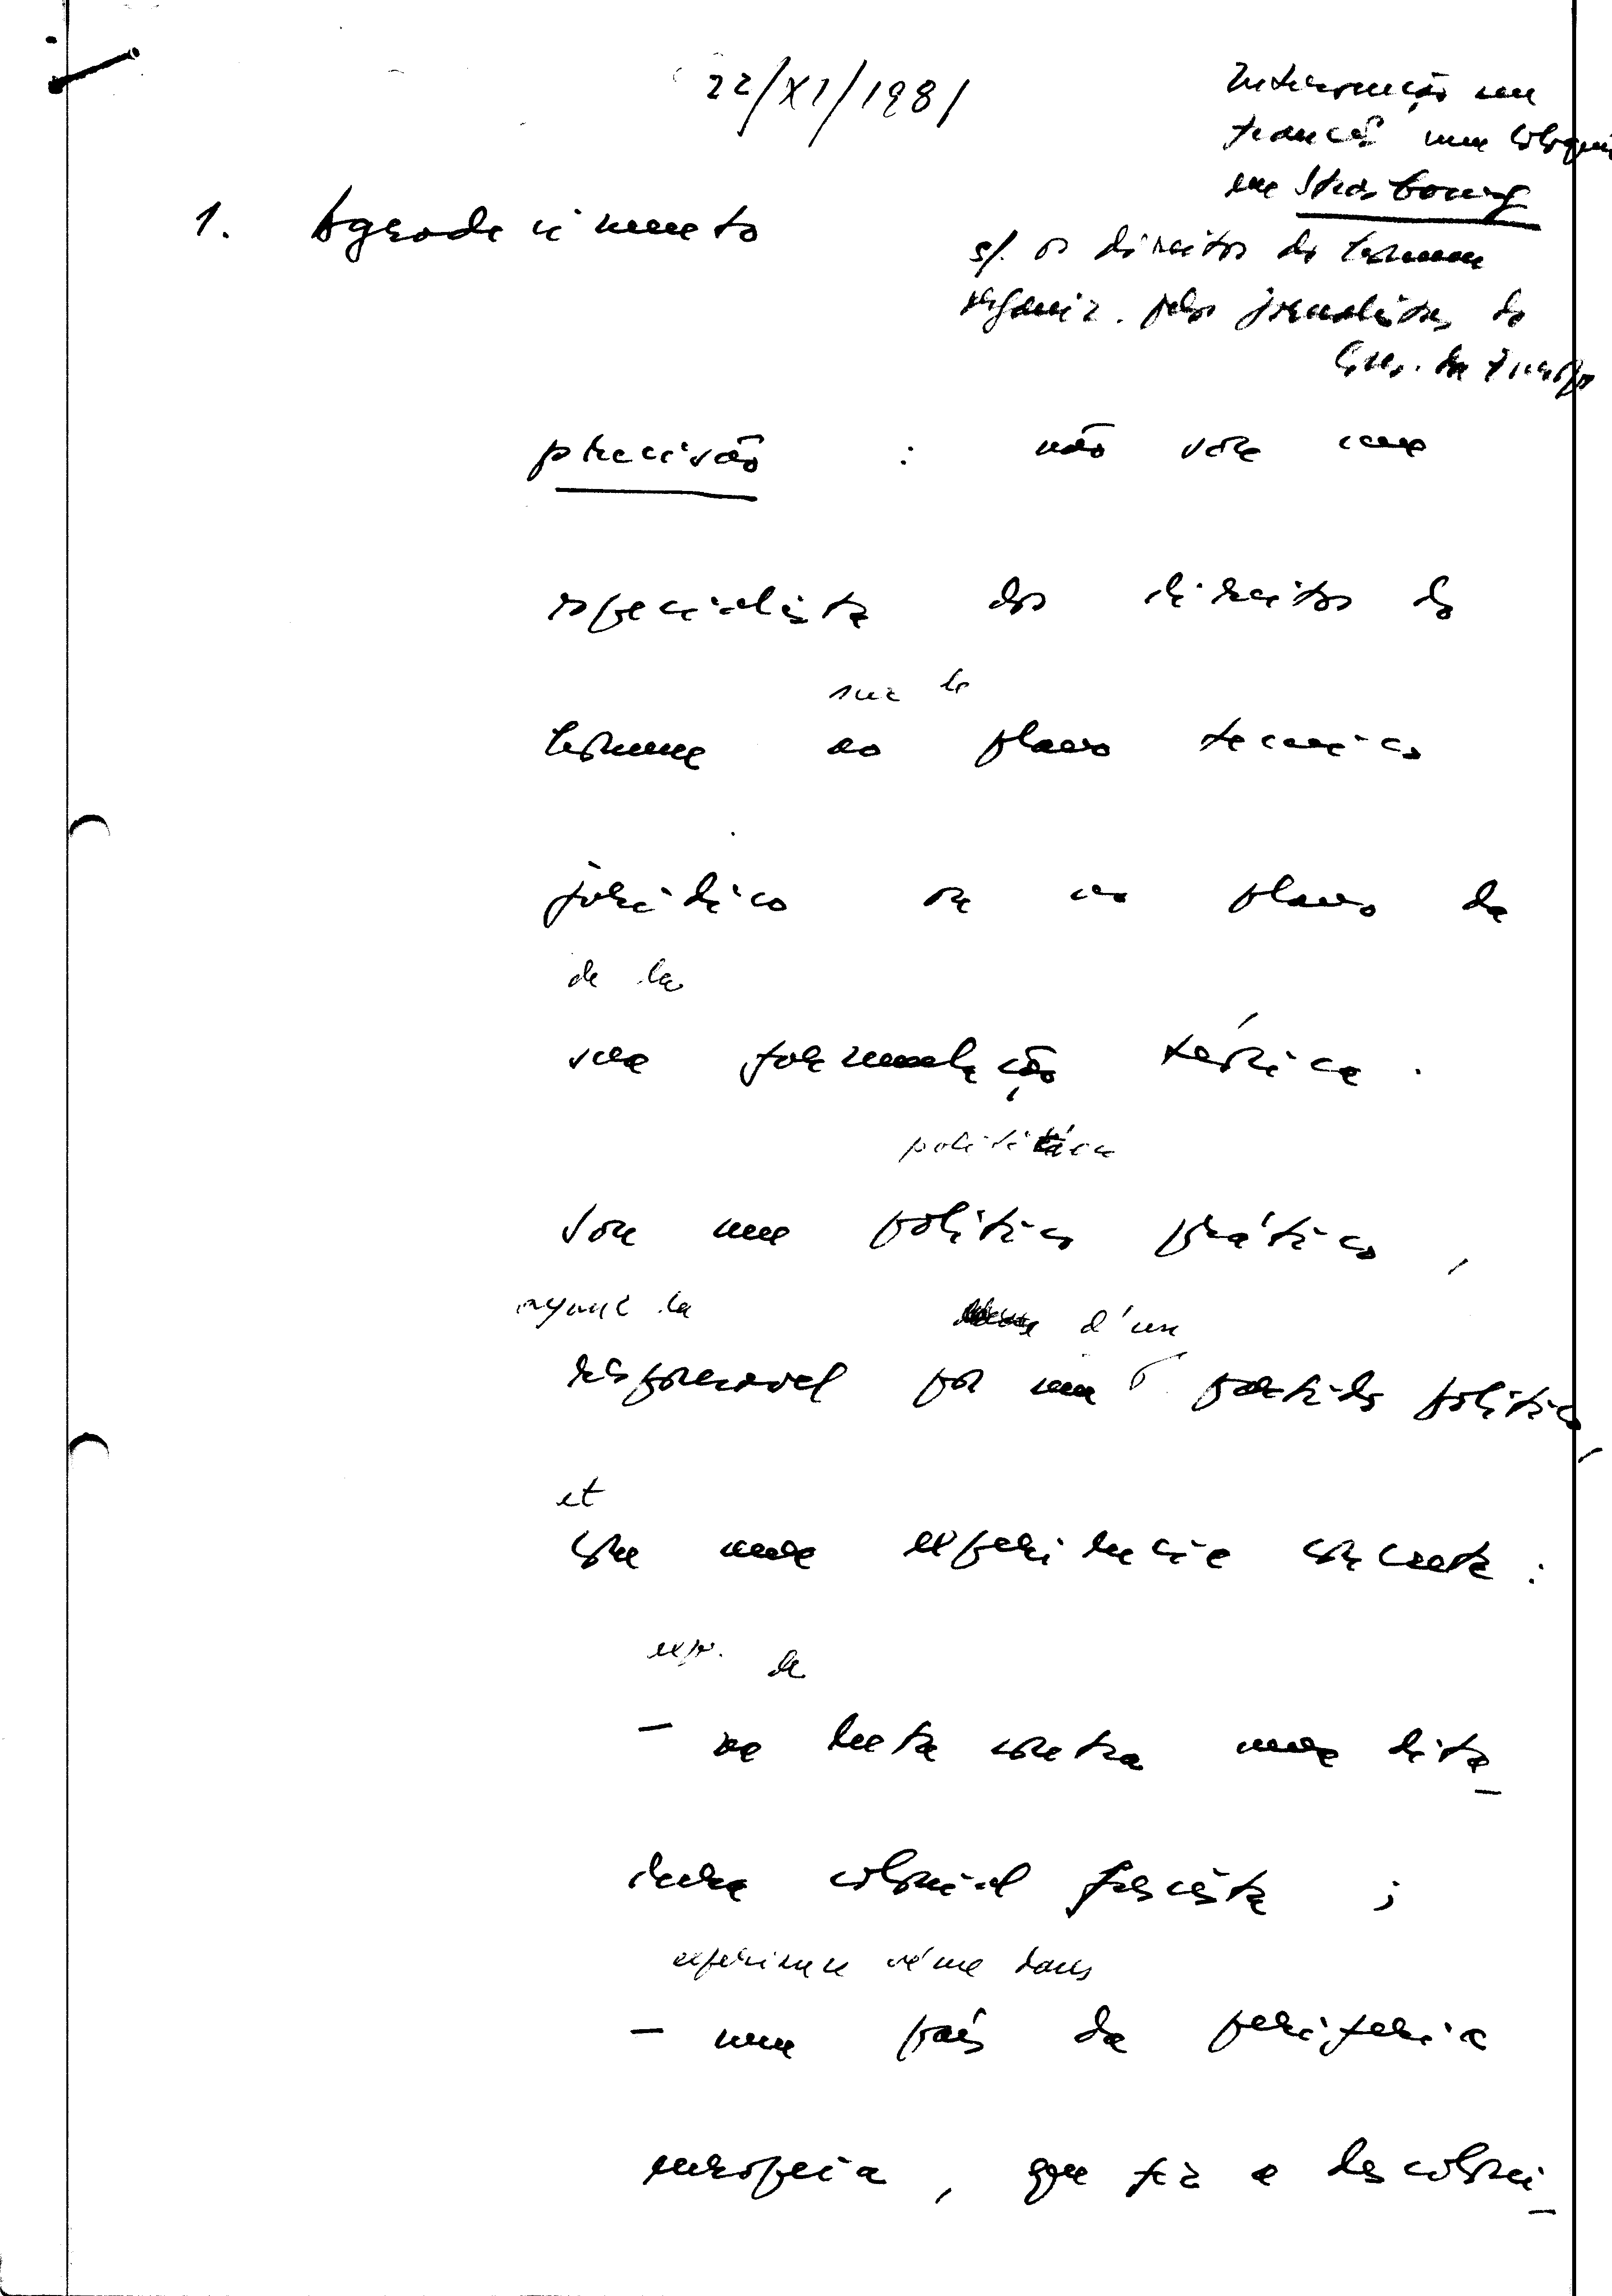 22/XI/1981
Intervenção em
francês num Coloquio
em Strasbourg
s/. os direitos do homem
organiz. pelos jornalistas do
Cons. da Europa
1. Agradecimento
precisão : não sou um
especialista dos direitos do
sur le
homem no plano tecnico
jurídico ou no plano da
de la
sua formulação teórica.
politicien
Sou um politico prático,
ayant la d'un
responsavel por um partido politico,
et
com uma experiencia concreta:
exp. de
- na luta contra uma dita_
dura colonial fascista;
expérience vécue dans
- num país da periferia
europeia, que fez a descoloni_